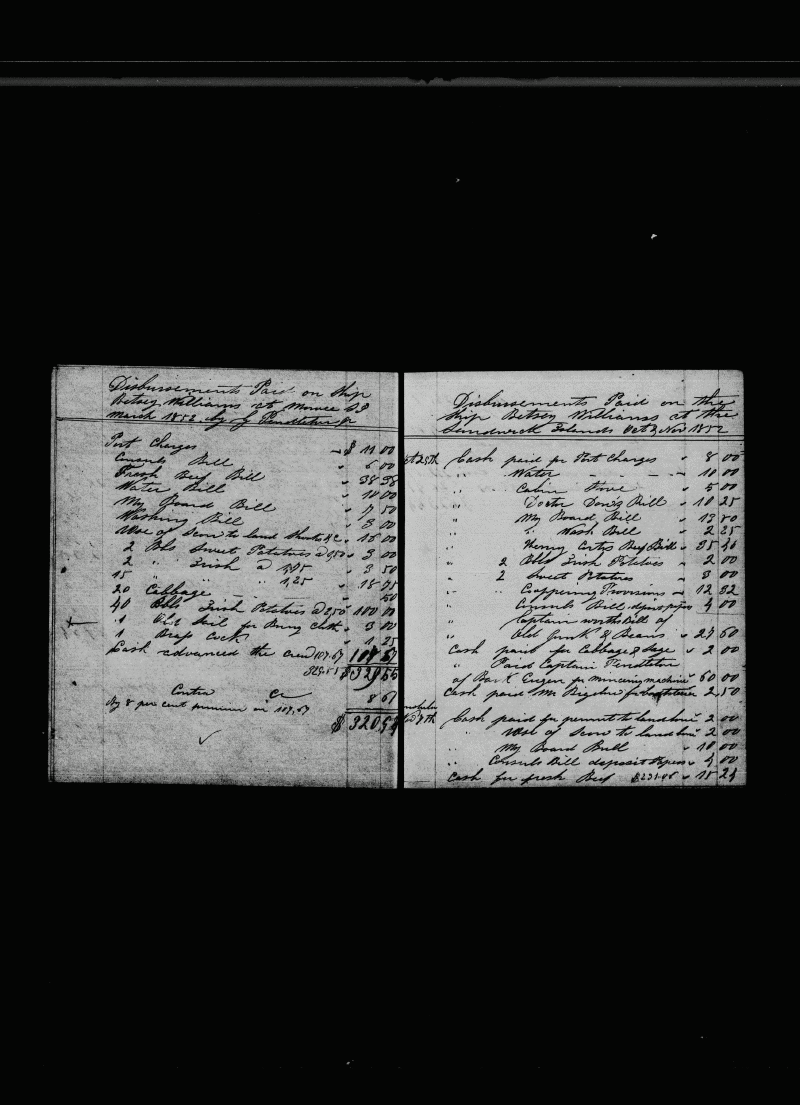 Disbursements Paid on Ship
Betsey Williams at
March 1852 by J Pendleton Jr
Port Charges $ 11 00
Consuls Bill " 6 00
Fresh Beef Bill " 38 98
Water Bill " 10 00
My Board Bill " 7 50
Washing Bill " 3 00
Use of Scow to land &c " 15 00
2 Bbls Sweet Potatoes a 1,50 " 3 00
2 " Irish a " 3 50
15 " " 1,25 " 18 75
20 Cabbage 50
40 Bbls Irish Potatoes a 2,50 " 100 00
1 Old Sail for Cloth " 3 00
1 Brass Cock " 1 25
Cash advanced the Crew 107.67
$ 329 55
Contra Cr
By 8 per cent premium on 107,67 8 61
$ 320,94
Disbursements Paid on the
Ship Betsey Williams at the
Sandwich Islands Oct & Nov 1852
Oct 25th Cash paid for Port Charges " 8 00
" Water " 10 00
" Cabin Stove " 5 00
" Doctor Bill " 10 25
" My Board Bill " 13 50
" " Wash Bill " 2 25
" Henry Beef Bill " 35 40
" 2 Bbls Irish Potatoes " 2 00
" 2 " Sweet Potatoes " 3 00
" Coppering Provisions " 12 32
" Consuls Bill papers " 4 00
" Captain Bill of
" Old Junk & Beans " 27 60
Cash paid for Cabbage & Sage " 2 00
" Paid Captain Pendleton
of Bark for mincing machine 60 00
Cash paid Mr Bigelow for 2,50
7th Cash paid for permit to land " 2 00
" Use of Scow to land " 2 00
" My Board Bill " 10 00
" Consuls Bill deposit papers " 4 00
Cash for fresh Beef " 15 24